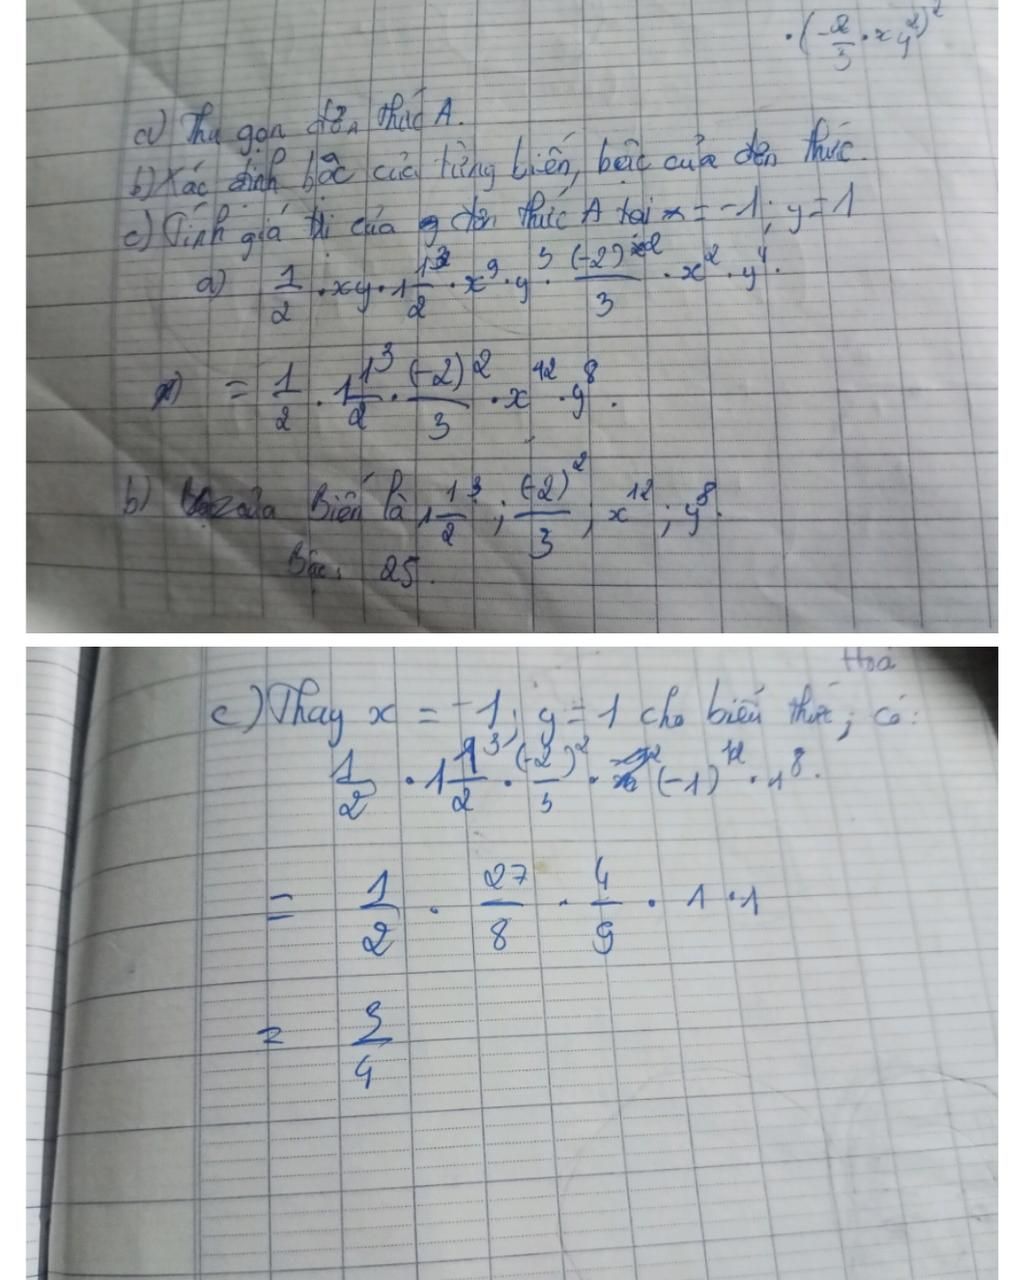 . (-2/3 . xy²)²
a) Thu gọn đơn thức A.
b) Xác định bậc của từng biến, bậc của đơn thức.
c) Tính giá trị của đơn thức A tại x = -1; y = 1
a) 1/2 . xy . 1 1/2³ . x⁹ . y³ . (-2)²/3 . x² . y⁴.
= 1/2 . 1 1/2³ . (-2)²/3 . x¹² . y⁸.
b) Biến là 1 1/2³ ; (-2)²/3 ; x¹² ; y⁸.
Bậc: 25.
Hoá
c) Thay x = -1; y = 1 cho biểu thức, có:
1/2 . 1 1/2³ . (-2/3)² . (-1)¹² . 1⁸.
= 1/2 . 27/8 . 4/9 . 1 . 1
= 3/4